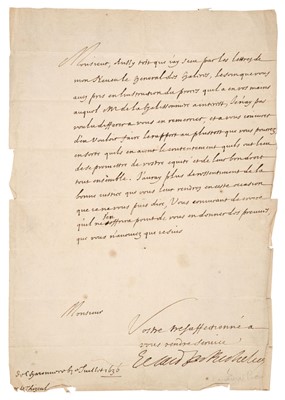 Monsieur, Aussy tost que j'ay sceu par les lettres de
mon Nepveu le General des Galeres, le soin que vous
avez pris en l'instruction du procez qui a en vos mains
auquel Mr de la a interest, Je n'ay pas
voulu differer a vous en remercier, et a vous conjurer
d'en vouloir faire le rapport au plustost que vous pourrez
en sorte qu'ils en ayent le contentement qu'ils ont lieu
de se promettre de vostre equité et de leur bon droit
tout ensemble. J'auray plus de ressentiment de la
bonne justice que vous leur rendrez en cette occasion
que je ne vous puis dire, Vous conjurant de croire
qu'il ne se point de vous en donner des preuves
que vous n'avouiez que je suis
Monsieur
Vostre tres affectionné a
vous rendre service
Le Card. de Richelieu
Juillet 1636